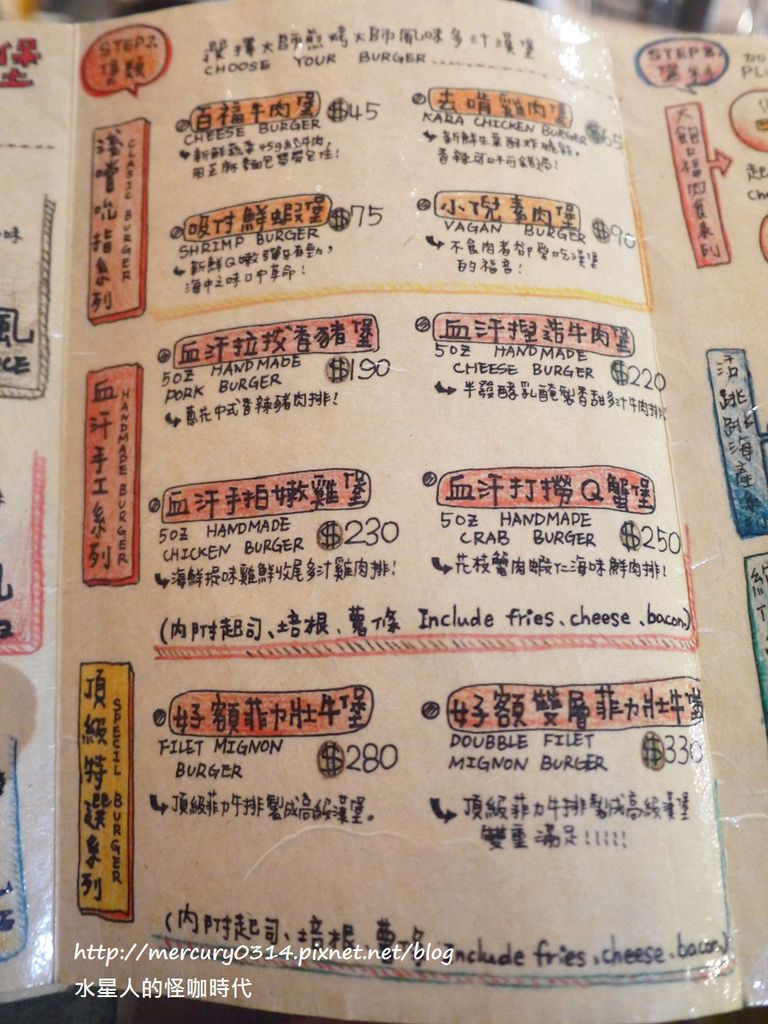 STEP2.
堡類
選擇大師煎烤大師風味多汁漢堡
CHOOSE YOUR BURGER
淺嚐吮指系列
CLASIC BURGER
百福牛肉堡 $45
CHEESE BURGER
新鮮蔬菜45g純牛肉,
用芝麻麵包帶帶包住!
去啃雞肉堡
KARA CHICKEN BURGER $65
新鮮生菜酥炸脆雞,
香辣可口不可錯過!
吸付鮮蝦堡 $75
SHRIMP BURGER
新鮮Q嫩彈牙有勁,
海中之味口中革命!
小倪素肉堡
VAGAN BURGER $90
不食肉者卻愛吃漢堡
的福音!
血汗手工系列
HANDMADE BURGER
血汗拉拔香豬堡
5OZ HANDMADE $190
PORK BURGER
蔥花中式香辣豬肉排!
血汗捏造牛肉堡
5OZ HANDMADE
CHEESE BURGER $220
半發酵乳醃製香甜多汁牛肉排!
血汗手拍嫩雞堡
5OZ HANDMADE
CHICKEN BURGER $230
海鮮提味雞鮮收尾多汁雞肉排!
血汗打撈Q蟹堡
5OZ HANDMADE
CRAB BURGER $250
花枝蟹肉蝦仁海味鮮肉排!
(內附起司、培根、薯條 Include fries、cheese、bacon)
頂級特選系列
SPECIL BURGER
好額菲力壯牛堡
FILET MIGNON
BURGER $280
頂級菲力牛排製成高級漢堡。
好額雙層菲力壯牛堡
DOUBBLE FILET
MIGNON BURGER $330
頂級菲力牛排製成高級漢堡
雙重滿足!!!!!
(內附起司、培根、薯條 Include fries、cheese、bacon)
STEP3.
加
PLU
大朗口福肉食系列
起
Ch
活跳跳海產系列
風
http://mercury0314.pixnet.net/blog
水星人的怪咖時代